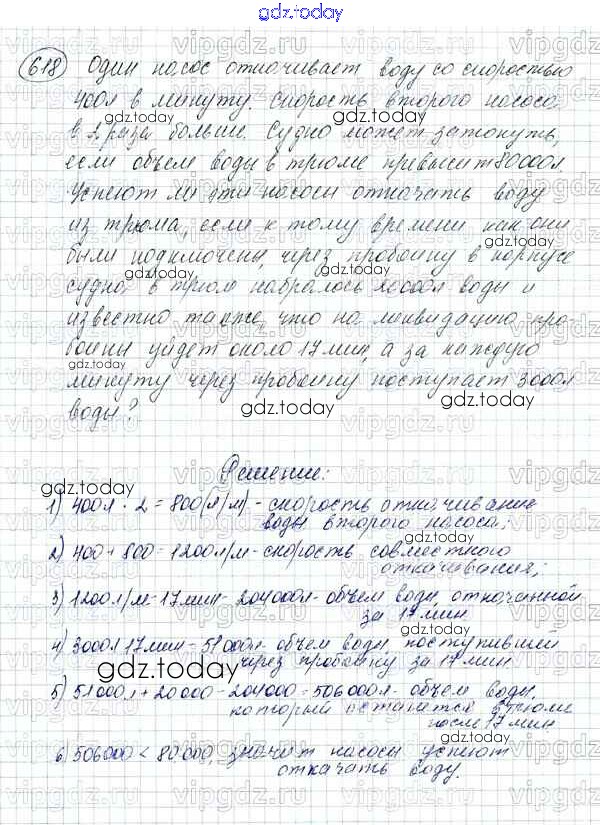 gdz.today
618 Один насос откачивает воду со скоростью
400л в минуту. Скорость второго насоса
в 2 раза больше. Судно может затонуть,
если объем воды в трюме превысит 80000л.
Успеют ли эти насосы откачать воду
из трюма, если к тому времени как они
были подключены, через пробоину в корпусе
судна в трюм набралось 20000л воды и
известно также, что на ликвидацию про
боины уйдет около 17 мин, а за каждую
минуту через пробоину поступает 3000л
воды?
Решение:
1) 400л · 2 = 800(л/м) - скорость откачивание
воды второго насоса;
2) 400 + 800 = 1200л/м - скорость совместного
откачивания;
3) 1200л/м · 17мин = 204000л - объем воды, откачанной
за 17 мин
4) 3000л · 17мин = 51000л - объем воды, поступившей
через пробоину за 17 мин
5) 51000л + 20000 - 204000 = 506000л - объем воды,
который останется в трюме
после 17 мин
6) 506000 < 80000, значит насосы успеют
откачать воду.
gdz.today